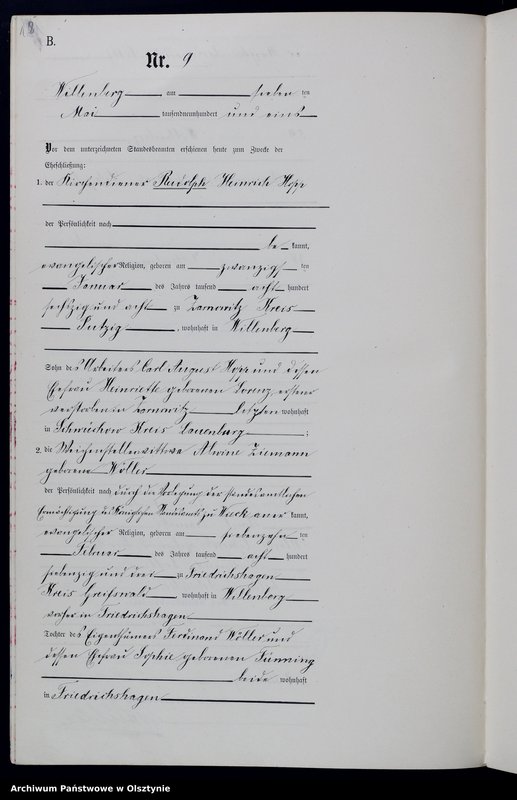 18
B.
Nr. 9
Willenberg am sieben ten
Mai tausendneunhundert und eins
Vor dem unterzeichneten Standesbeamten erschienen heute zum Zwecke der
Eheschließung:
1. der Kirchendiener Rudolph Heinrich Hopp
der Persönlichkeit nach
be kannt,
evangelischer Religion, geboren am zwanzigs ten
Januar des Jahres tausend acht hundert
sechszig und acht zu Zarnowitz Kreis
Putzig, wohnhaft in Willenberg
Sohn des Arbeiters Carl August Hopp und dessen
Ehefrau Henriette geborenen Lorenz, ersterer
verstorben in Zarnowitz letztere wohnhaft
in Schwichow Kreis Lauenburg;
2. die Weichenstellerwittwe Alwine Ziemann
geborene Möller
der Persönlichkeit nach durch die Vorlegung der standesamtlichen
Ermächtigung des Königlichen Standesamts zu aner kannt,
evangelischer Religion, geboren am siebenzehn ten
Februar des Jahres tausend acht hundert
siebenzig und drei zu Friedrichshagen
Kreis Greifswald, wohnhaft in Willenberg
vorher in Friedrichshagen
Tochter des Eigenthümers Ferdinand Möller und
dessen Ehefrau Sophie geborenen
beide wohnhaft
in Friedrichshagen
Archiwum Państwowe w Olsztynie